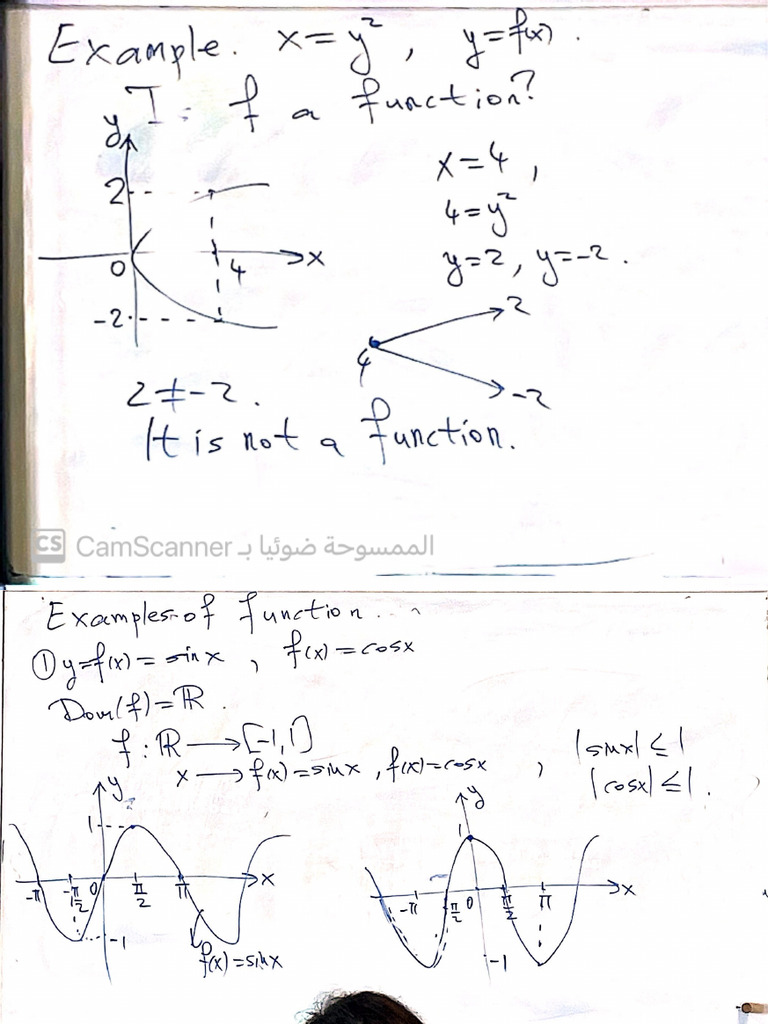 Example. x=y², y=f(x).
Is f a function?
y
2
x=4,
4=y²
y=2, y=-2.
0
4
x
-2
2
4
-2
2≠-2.
It is not a function.
CS CamScanner الممسوحة ضوئيا بـ
Examples of function...
① y=f(x)=sinx, f(x)=cosx
Dom(f)=ℝ.
f:ℝ→[-1,1]
x→f(x)=sinx, f(x)=cosx, |sinx|≤1
|cosx|≤1.
y
1
-π
-π/2
0
π/2
π
x
-1
f(x)=sinx
y
1
-π
-π/2
0
π/2
π
x
-1